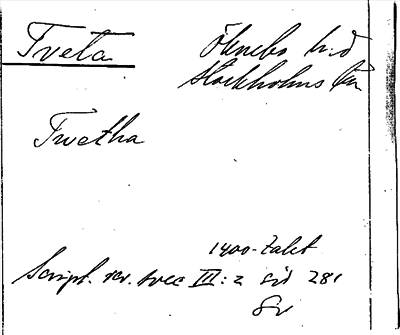 Tveta
Öknebo h:d
Stockholms län
Twetha
1400-talet
Script. rer. svec III:2 sid 281